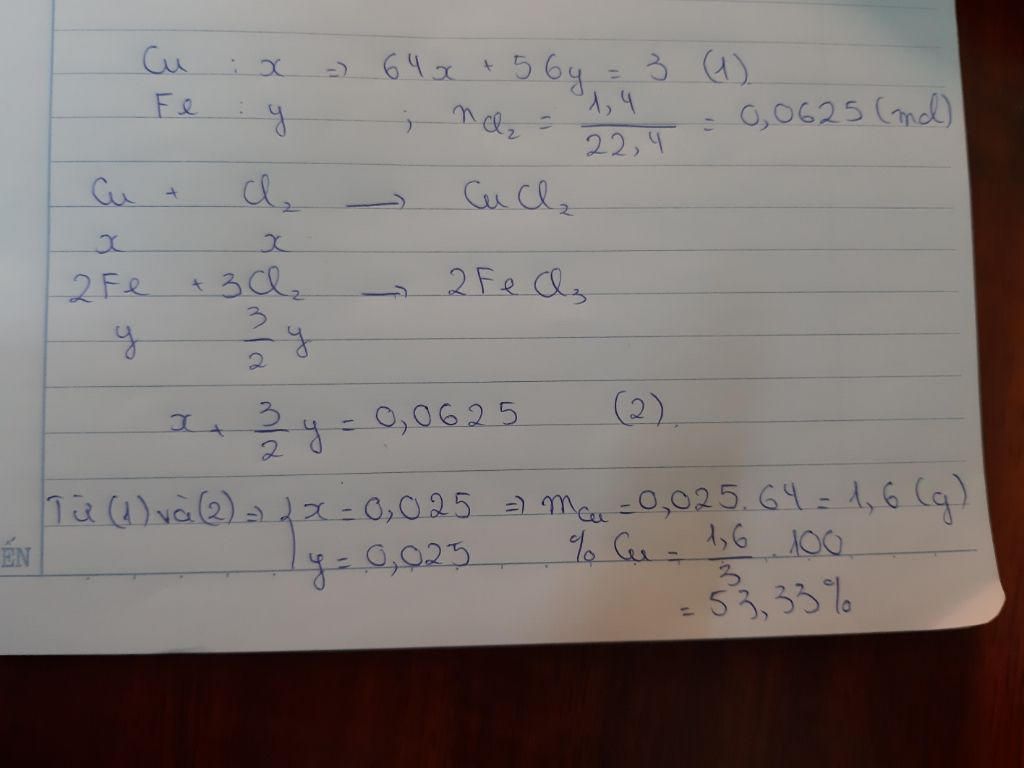 Cu : x => 64x + 56y = 3 (1)
Fe : y ; nCl₂ = 1,4/22,4 = 0,0625 (mol)
Cu + Cl₂ → CuCl₂
x x
2Fe + 3Cl₂ → 2FeCl₃
y 3/2 y
x + 3/2 y = 0,0625 (2)
Từ (1) và (2) => { x = 0,025 => mCu = 0,025.64 = 1,6 (g)
y = 0,025 % Cu = 1,6/3 . 100
= 53,33%
ÉN